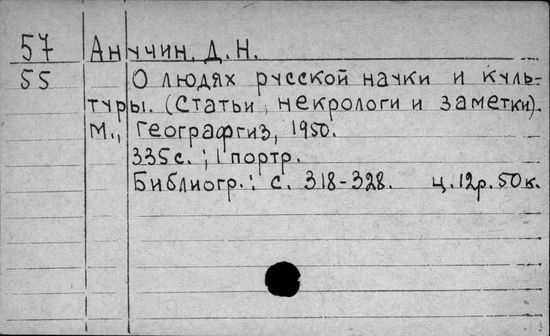 57 Анучин, Д. Н.
55 О людях русской науки и куль-
туры. (Статьи, некрологи и заметки).
М., Географгиз, 1950.
335 с. ; 1 портр.
Библиогр.: с. 318-328. ц. 12р. 50к.